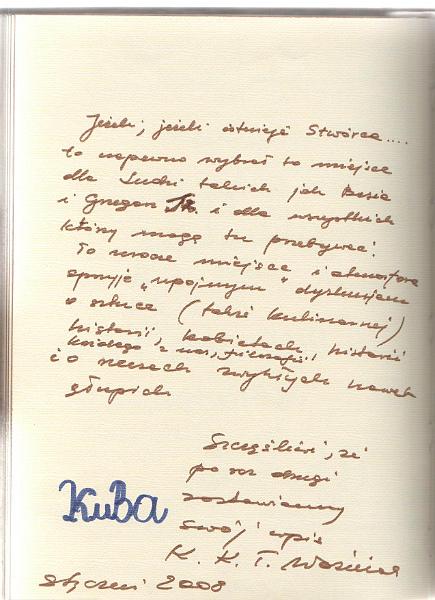 Jeżeli, jeżeli istnieje Stwórca....
to napewno wybrał to miejsce
dla Ludzi takich jak Basia
i Grzegorz St. i dla wszystkich
którzy mogą tu przebywać!
To urocze miejsce i atmosfera
sprzyja "upojnym" dyskusjom
o sztuce (także kulinarnej)
historii, kobietach, historii
każdego z nas, filozofii,
i o rzeczach zwykłych nawet
głupich
Szczęśliwi, że
po raz drugi
zostawiamy
swój wpis
Kuba
K. K. T.
styczeń 2008